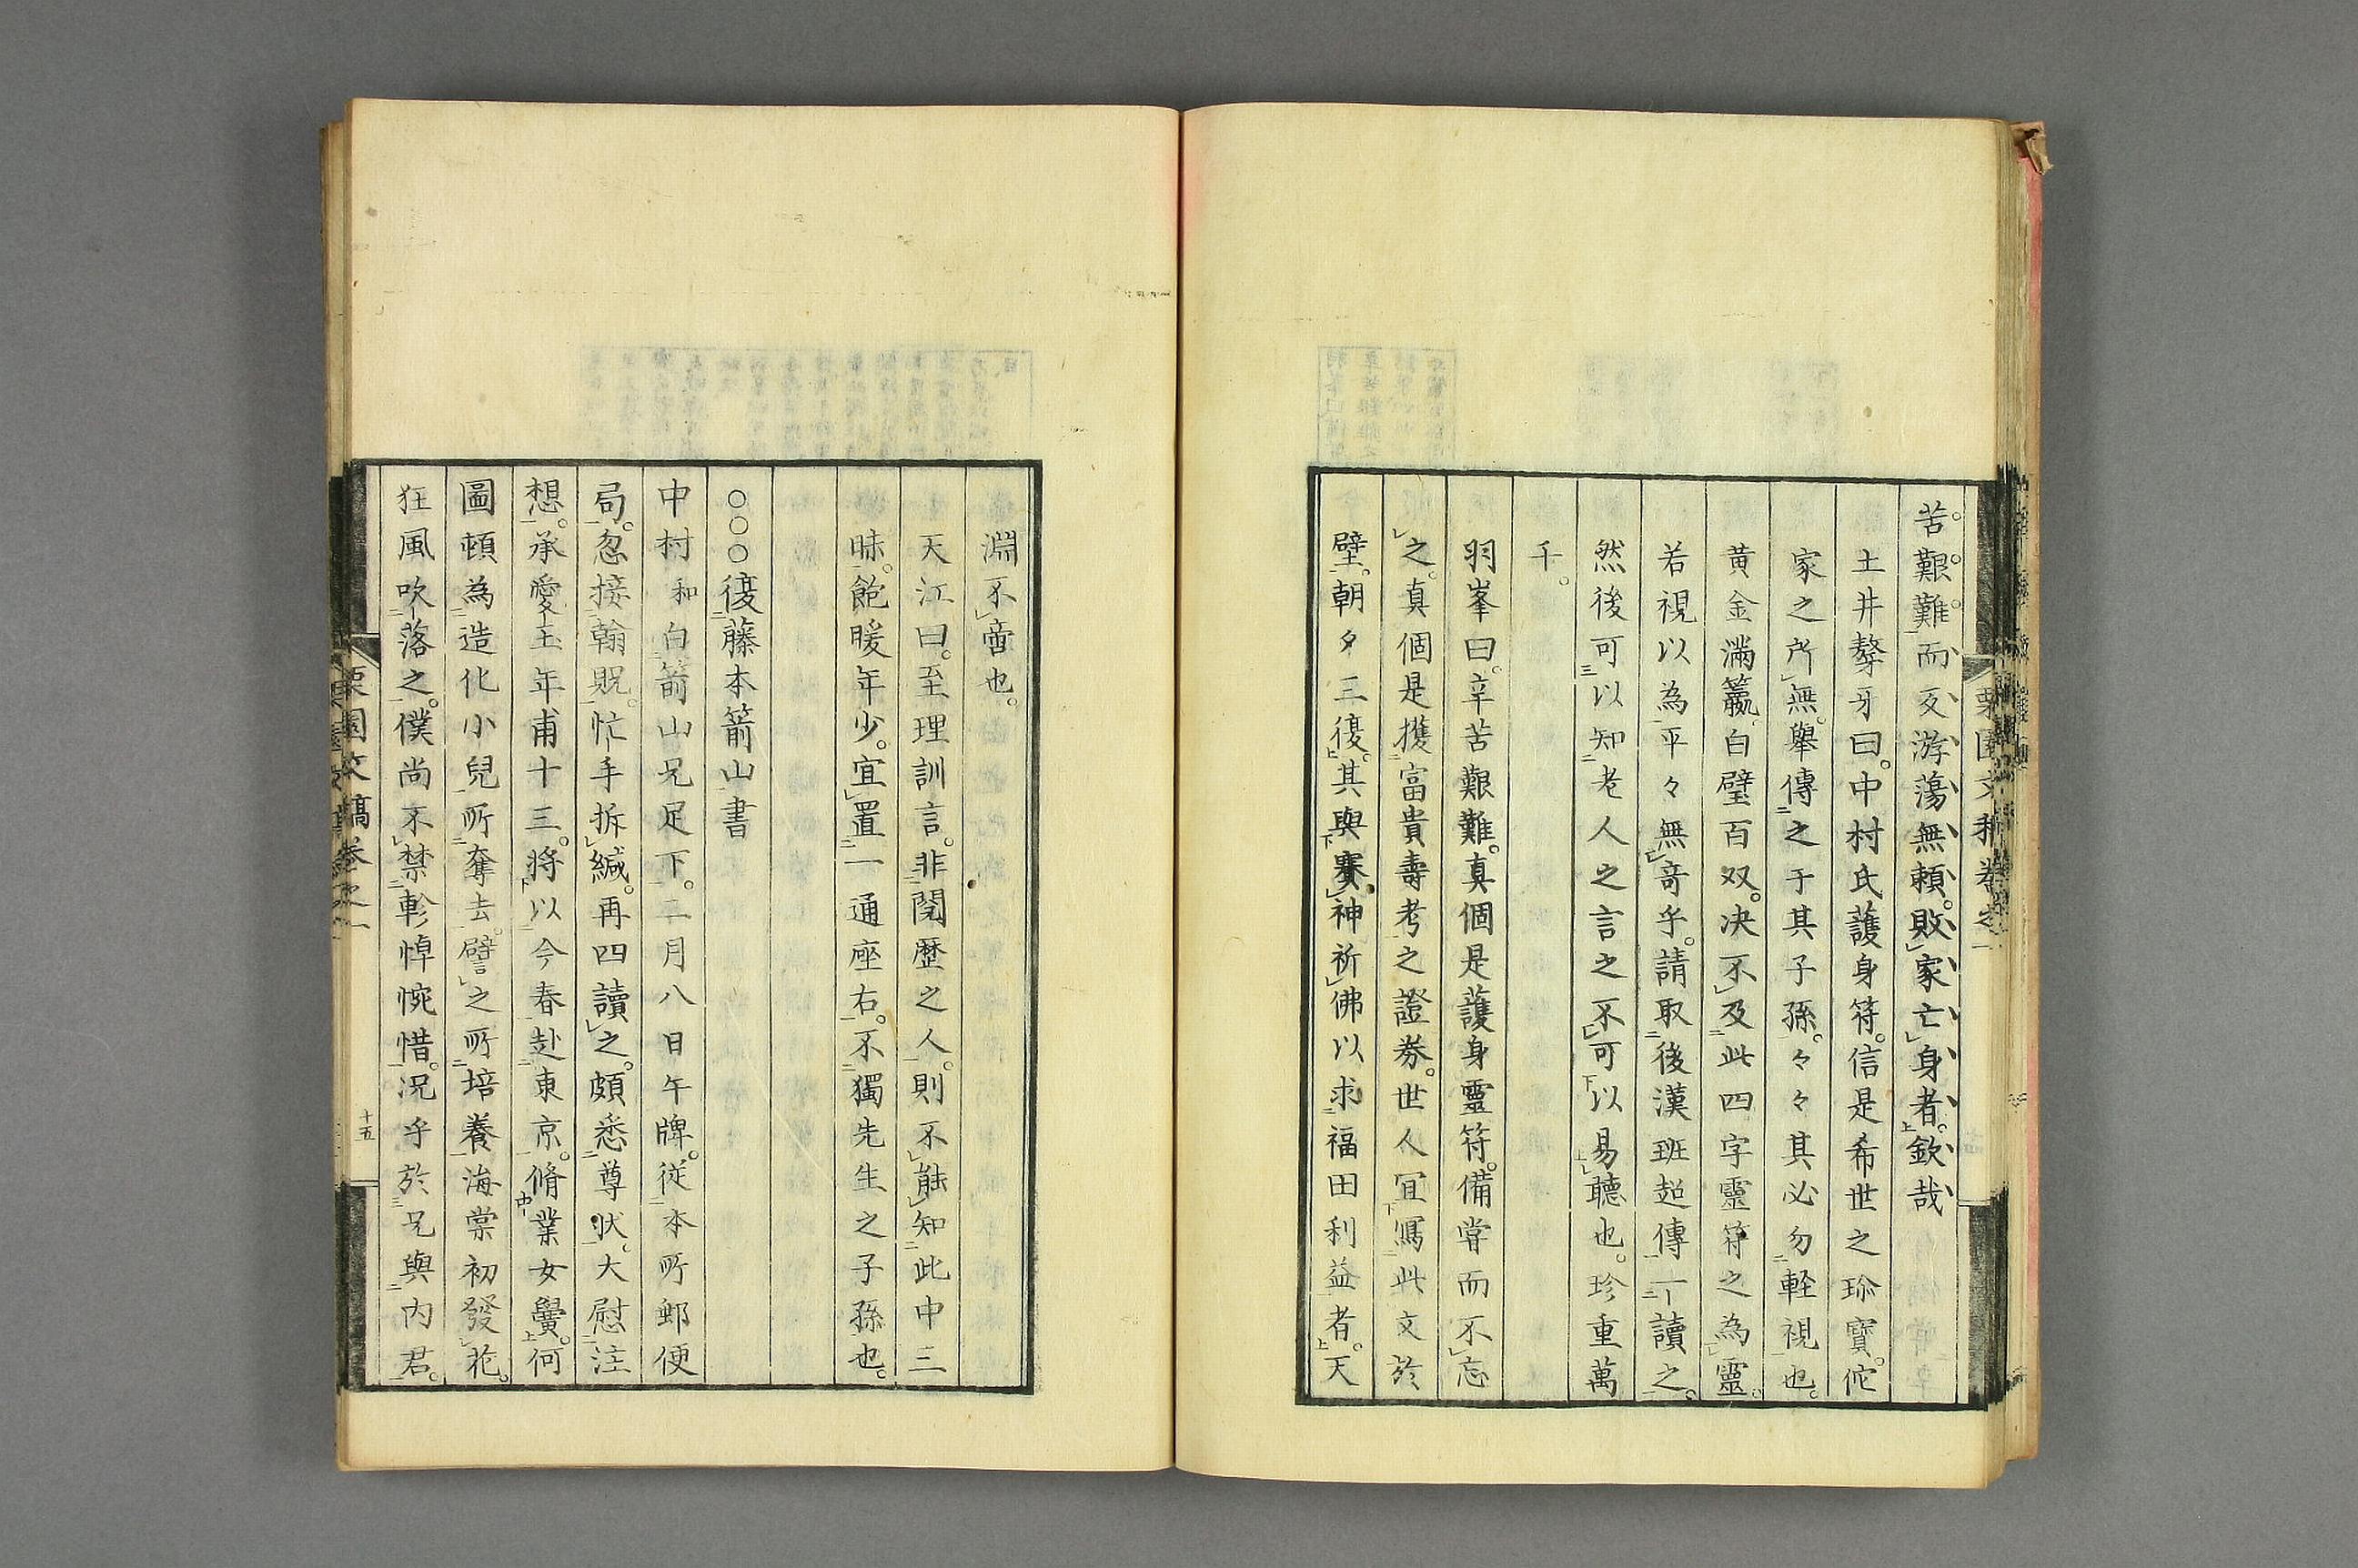 苦。艱。難。而反游蕩無賴。敗家亡身者。欽哉
土井聱牙曰。中村氏護身符。信是希世之珎寶。佗
家之所無。舉傳之于其子孫。々々其必勿軽視也。
黄金滿籯。白璧百双。决不及此四字靈符之為靈。
若視以為平々無奇乎。請取後漢班超傳一讀之。
然後可以知老人之言之不可以易聽也。珍重萬
千。
羽峯曰。辛苦艱難。真個是護身靈符。備嘗而不忘
之。真個是擭富貴壽考之證券。世人宜寫此文於
壁。朝夕三復。其與賽神祈佛以求福田利益者。天
淵不啻也。
天江曰。至理訓言。非閲歴之人。則不能知此中三
昧。飽暖年少。宜置一通座右。不獨先生之子孫也。
○○○復藤本箭山書
中村和白箭山兄足下。二月八日午牌。従本所郵便
局。忽接翰貺。忙手拆緘。再四讀之。頗悉尊状。大慰注
想。承愛玉年甫十三。将以今春赴東京。脩業女黌。何
圖頓為造化小兒所奪去。譬之所培養海棠初發花。
狂風吹落之。僕尚不禁軫悼惋惜。况乎於兄與内君。
栗園文稿卷之一
十五